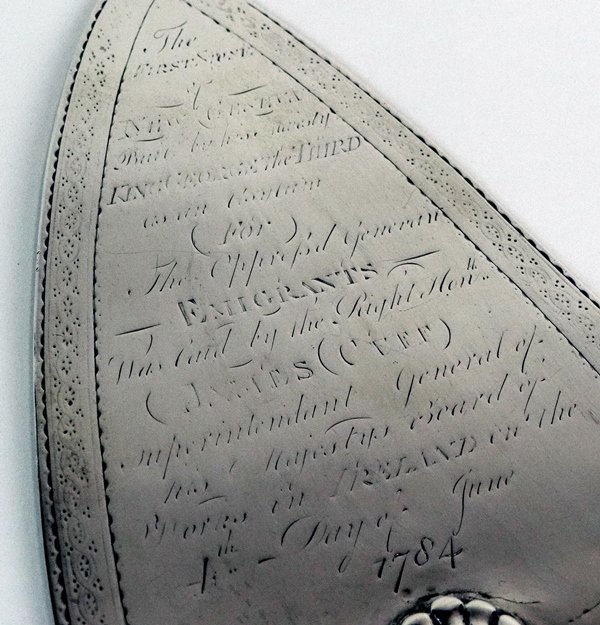 The
FIRST STONE
of
NEW GENEVA
Built by his majesty
KING GEORGE the THIRD
as an Asylum
(FOR)
The Oppresd Genevan
EMIGRANTS
Was laid by the Right Honble
(JAMES CUFF)
Superintendant General of
his Majestys Board of
Works in IRELAND on the
Day of June
1784